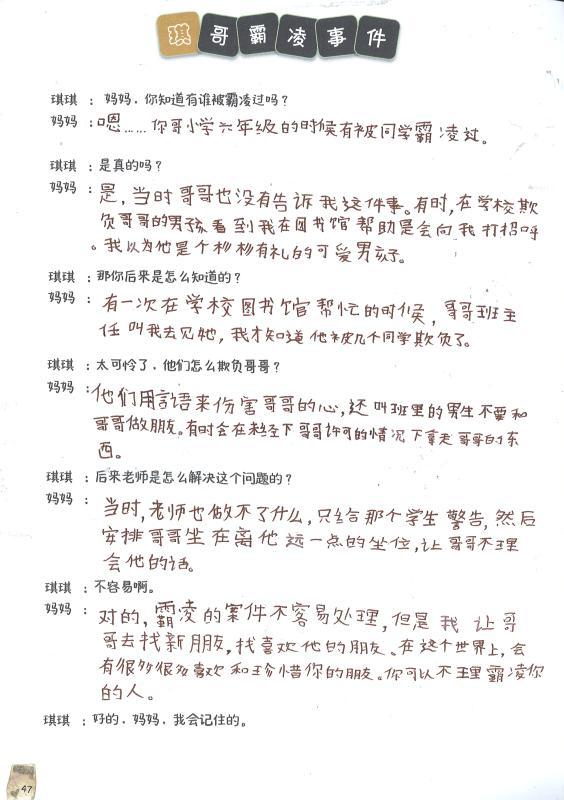 琪哥霸凌事件
琪琪：妈妈，你知道有谁被霸凌过吗？
妈妈：嗯……你哥小学六年级的时候有被同学霸凌过。
琪琪：是真的吗？
妈妈：是，当时哥哥也没有告诉我这件事。有时，在学校欺
负哥哥的男孩看到我在图书馆帮助是会向我打招呼
。我以为他是个彬彬有礼的可爱男孩子。
琪琪：那你后来是怎么知道的？
妈妈：有一次在学校图书馆帮忙的时候，哥哥班主
任叫我去见她，我才知道他被几个同学欺负了。
琪琪：太可怜了，他们怎么欺负哥哥？
妈妈：他们用言语来伤害哥哥的心，还叫班里的男生不要和
哥哥做朋友。有时会在未经下哥哥许可的情况下拿走哥哥的东
西。
琪琪：后来老师是怎么解决这个问题的？
妈妈：当时，老师也做不了什么，只给那个学生警告，然后
安排哥哥坐在离他远一点的坐位，让哥哥不理
会他的话。
琪琪：不容易啊。
妈妈：对的，霸凌的案件不容易处理，但是我让哥
哥去找新朋友，找喜欢他的朋友。在这个世界上，会
有很多很多喜欢和珍惜你的朋友。你可以不理霸凌你
的人。
琪琪：好的，妈妈，我会记住的。
47